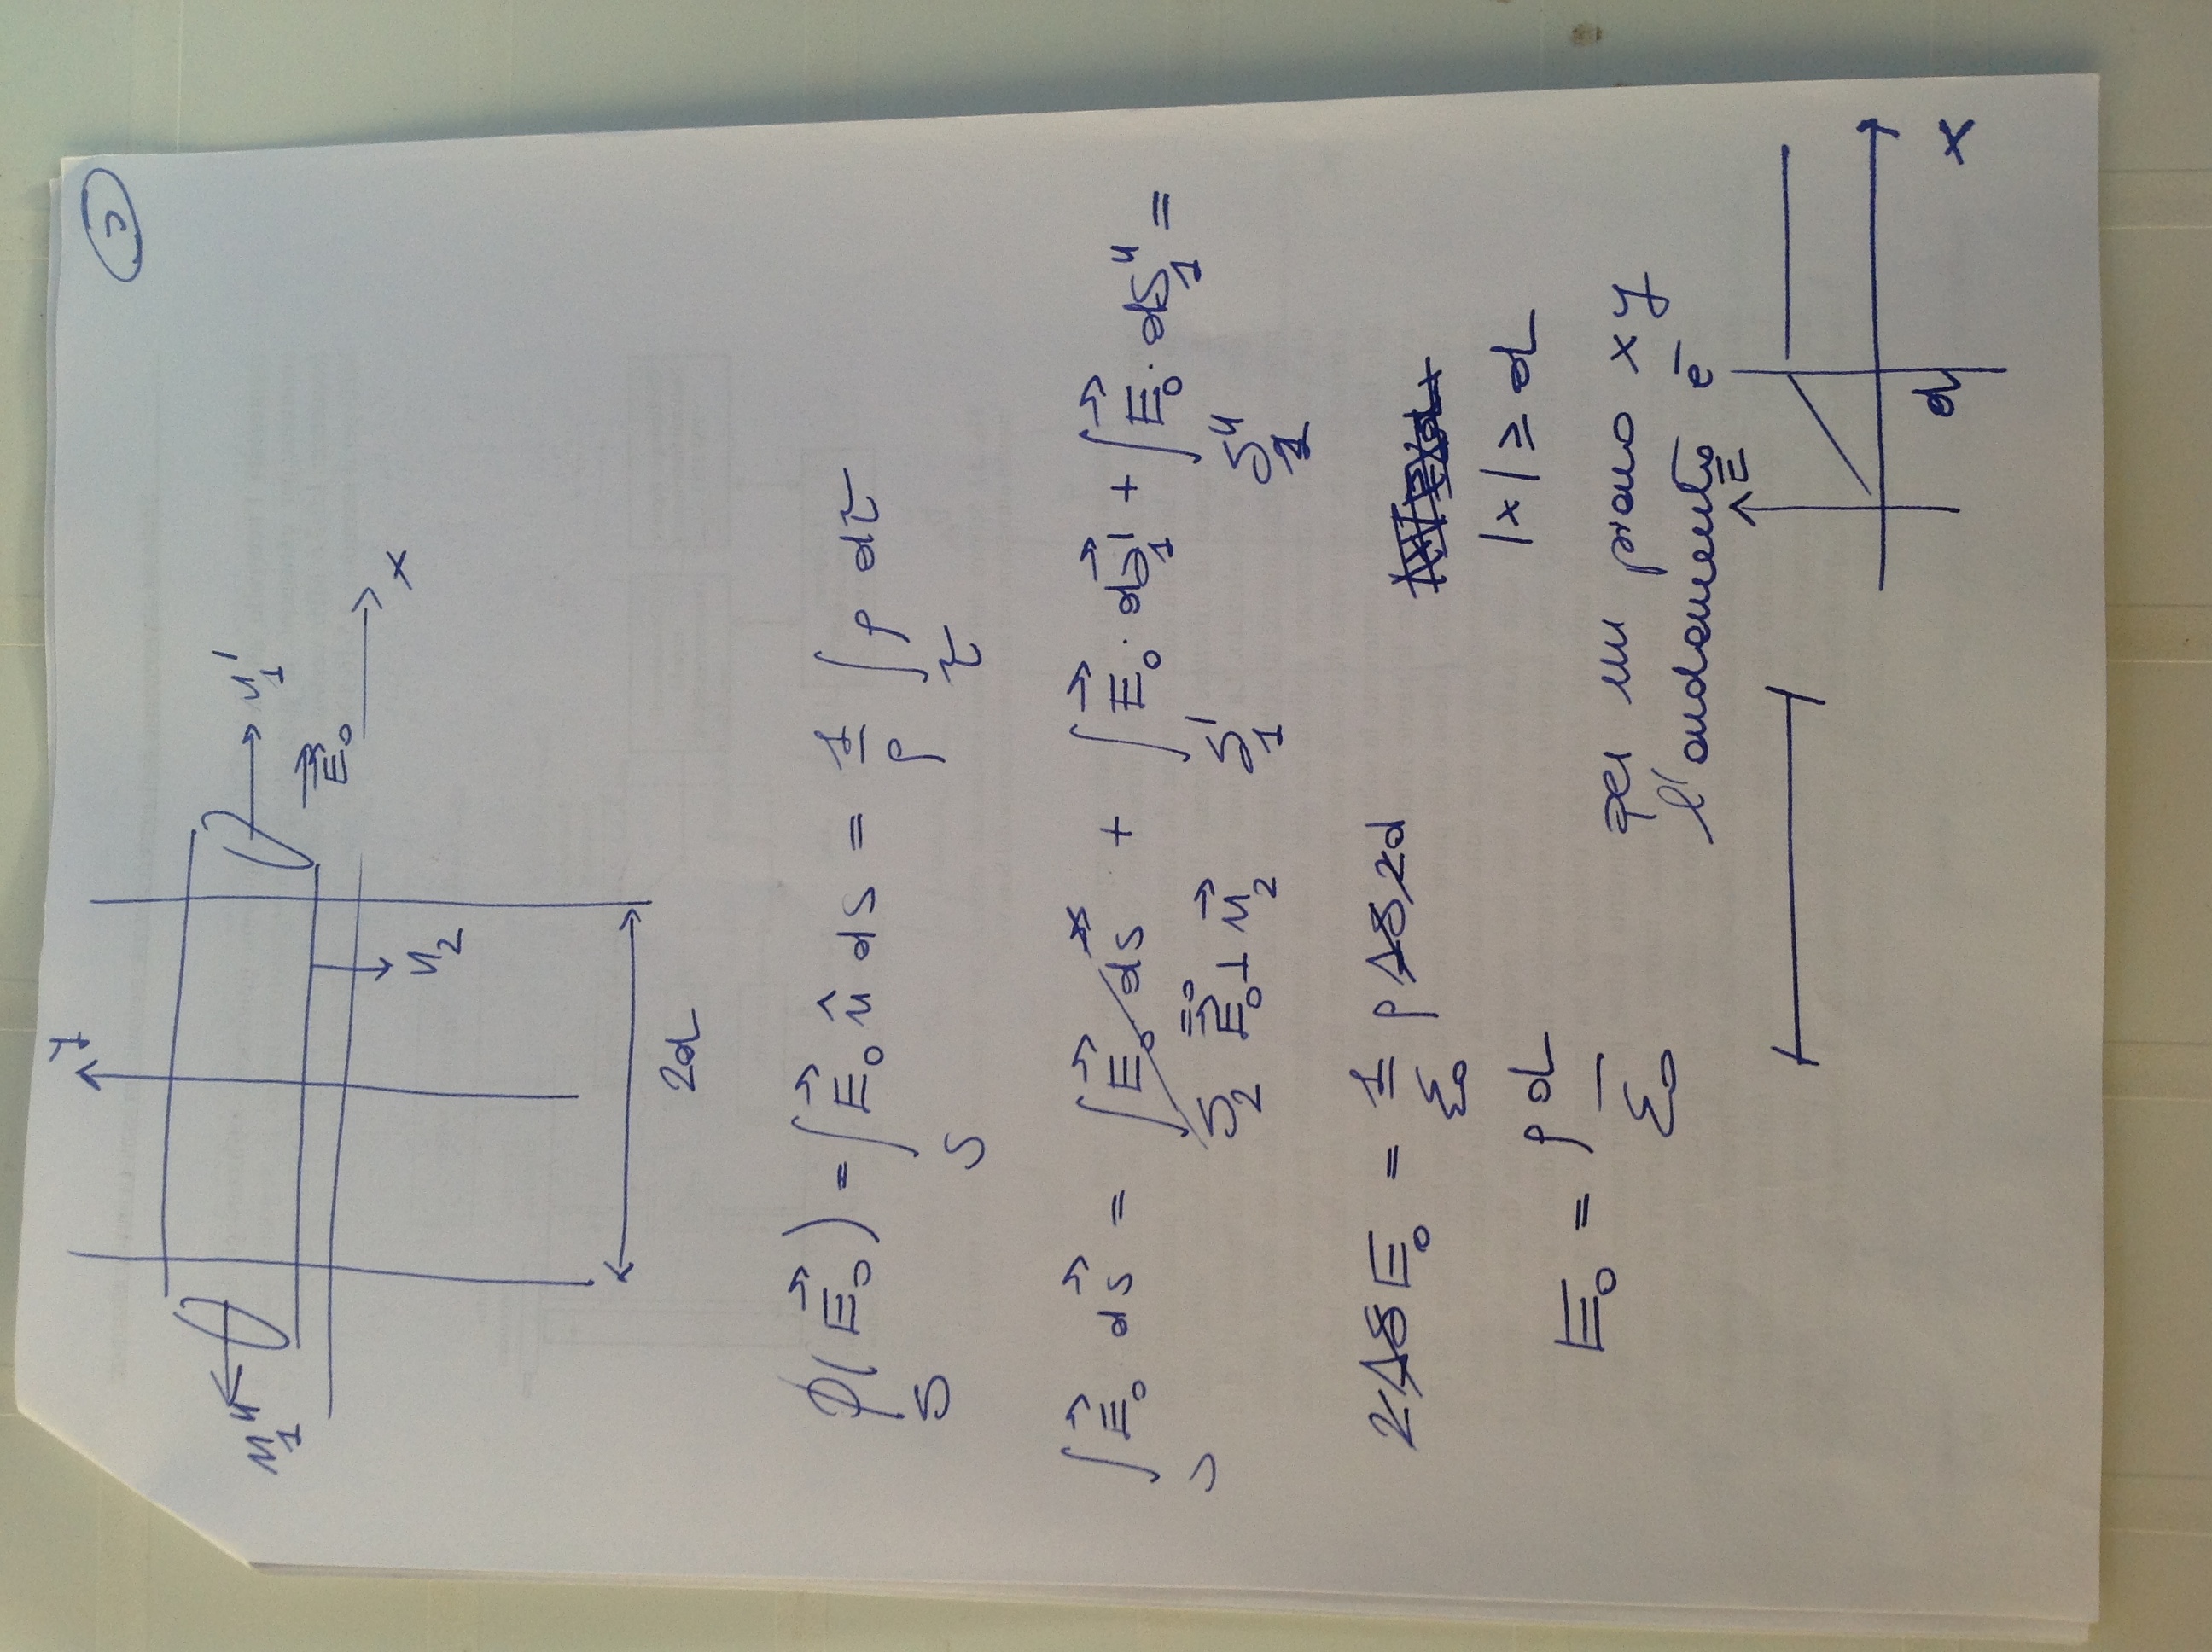 y
n₁'' n₁'
E⃗₀
x
n₂
2d
ϕ_S(E⃗₀) = ∫_S E⃗₀ n̂ dS = 1/ρ ∫_τ ρ dτ
∫_S E⃗₀ dS⃗ = ∫_S₂ E⃗₀ dS⃗ + ∫_S₁' E⃗₀ · dS⃗₁' + ∫_S₁'' E⃗₀ · dS₁'' =
=0
E⃗₀ ⊥ n⃗₂
2ΔS E₀ = 1/ε₀ ρ ΔS 2d
|x| ≥ d
E₀ = ρd/ε₀
per un piano xy
l'andamento è
E
d x